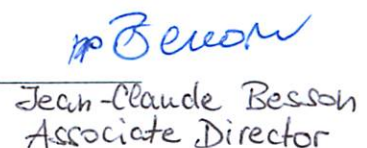 pp
Jean-Claude Besson
Associate Director